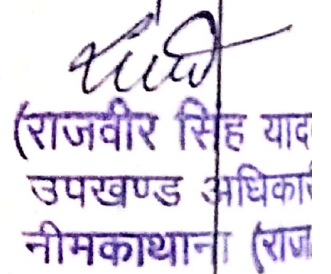 (राजवीर सिंह याद
उपखण्ड अधिकार
नीमकाथाना (राज